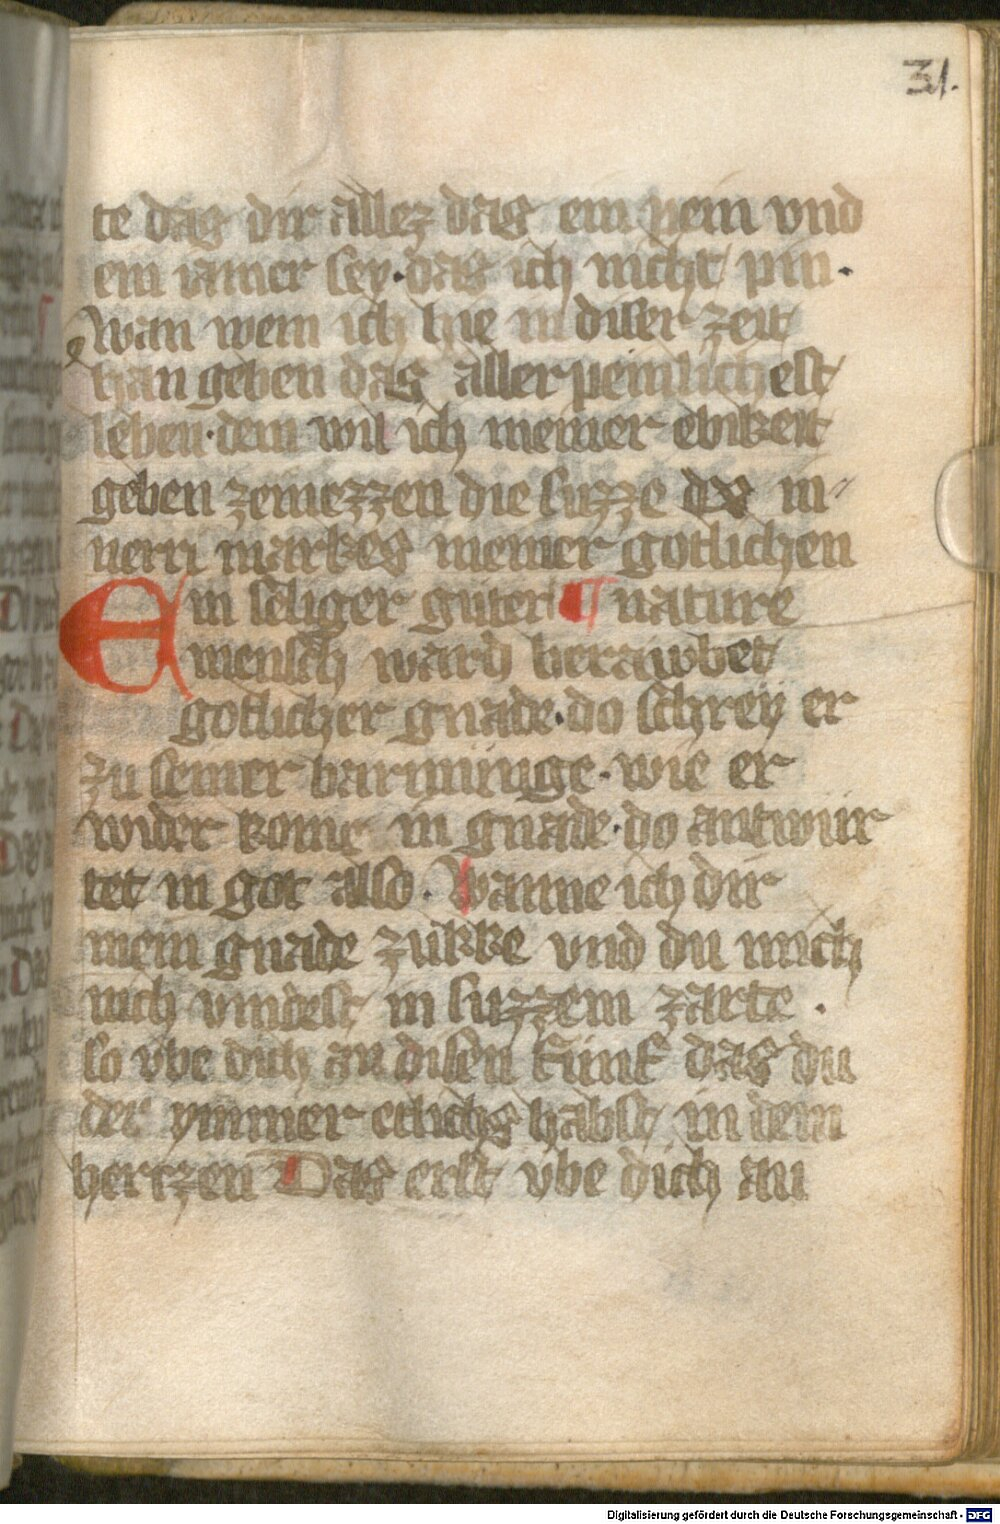 31.
te das dir allez das ein pein vnd
ein iamer sey. das ich nicht pin.
Wan wem ich hie in diser zeit
han geben das aller peinlichest
leben. dem wil ich meiner ebikeit
geben zemezzen die suzze dez in-
nern markes meiner gotlichen
Ein seliger guter ¶ nature
mensch ward berawbet
gotlicher gnade. do schrey er
zu seiner barmunge. wie er
wider kome in gnade. do antwur
tet in got also. Wanne ich dir
mein gnade zukke vnd du mich
nich vindest in suzzem zarte.
so vbe dich an disen funf das du
der ymmer etlichs habst in dem
herczen Das erst vbe dich an
Digitalisierung gefördert durch die Deutsche Forschungsgemeinschaft - DFG